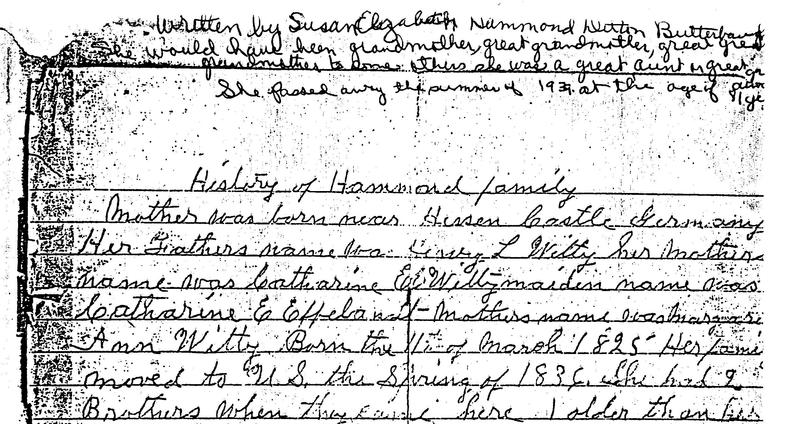 Written by Susan Elizabeth Hammond Hutton Butterbaugh
She would have been grandmother, great grandmother, great great
grandmother to some. Others she was a great aunt or great
She passed away the summer of 193 at the age of
History of Hammond family
Mother was born near Hessen Castle Germany
Her Fathers name wa Henry L Witty her mother
name was Catharine E Witty maiden name was
Catharine E Effeland Mothers name was Margare
Ann Witty Born the 11th of March 1825 Her fami
moved to U.S. the Spring of 1836. she had 2
Brothers when they came here 1 older than her